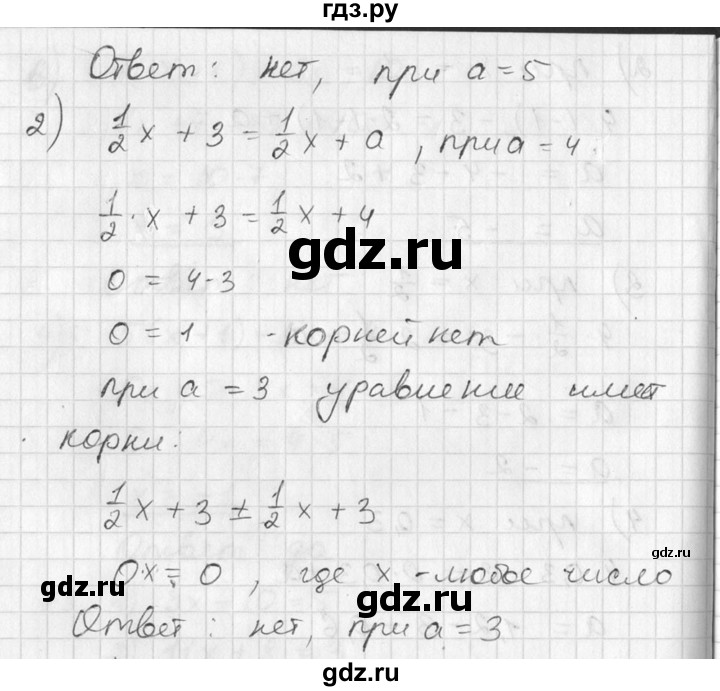 гдз.ру
Ответ: нет, при a = 5
2) 1/2 x + 3 = 1/2 x + a, при a = 4.
1/2 · x + 3 = 1/2 x + 4
gdz.ru
0 = 4-3
0 = 1 - корней нет
при a = 3 уравнение имеет
корни:
1/2 x + 3 = 1/2 x + 3
gdz.ru
0·x = 0, где x - любое число
gdz.ru
gdz.ru
Ответ: нет, при a = 3
gdz.ru